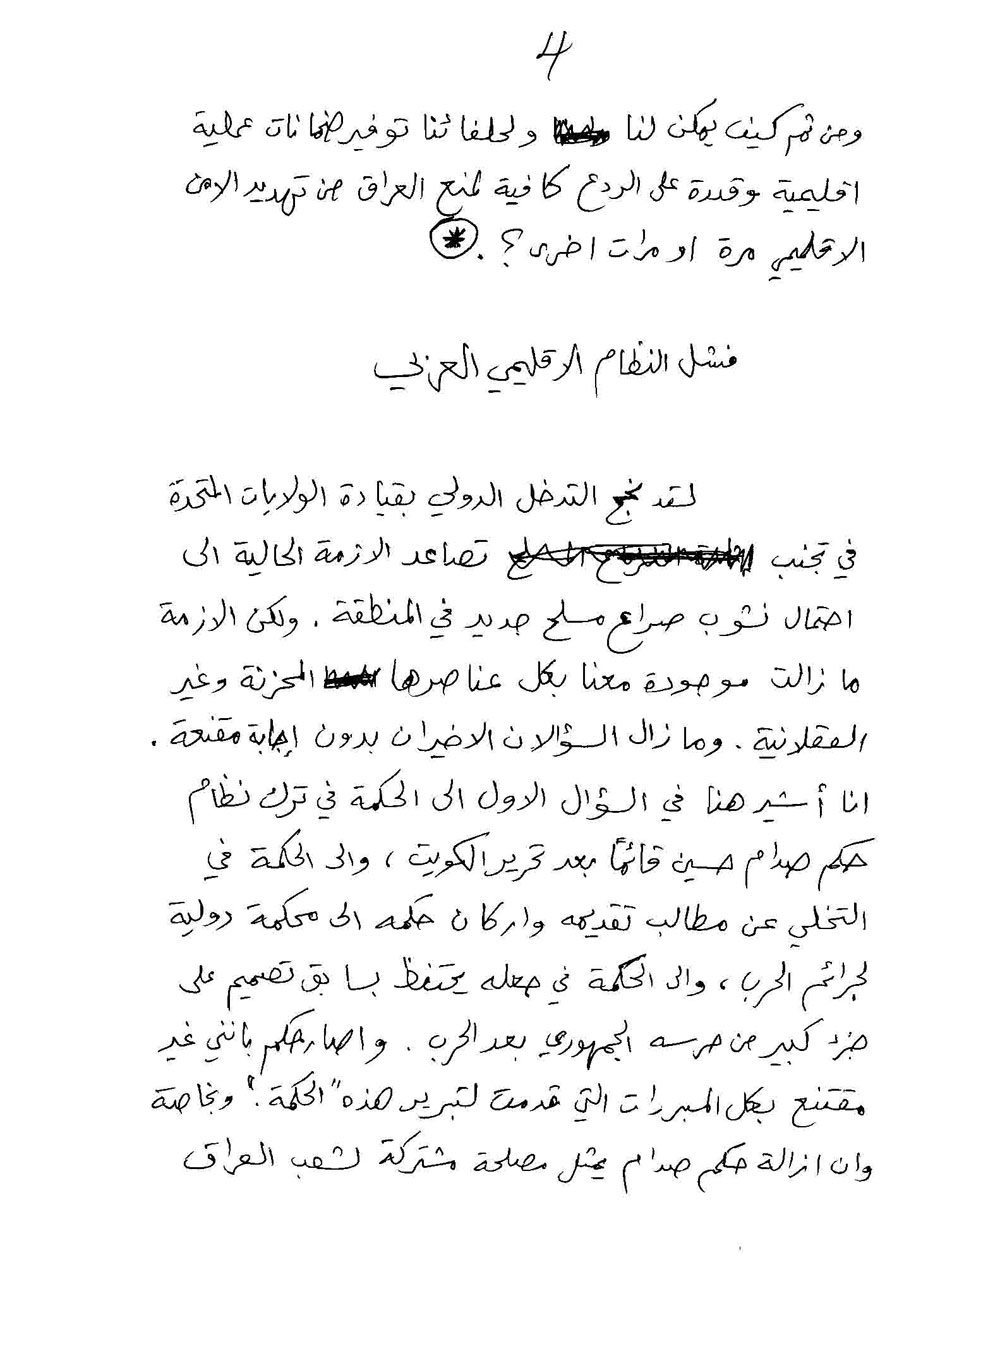 4
ومن ثم كيف يمكن لنا ولحلفائنا توفير ضمانات عملية
اقليمية وقدرة على الردع كافية لمنع العراق من تهديد الامن
الاقليمي مرة او مرات اخرى؟ . *
فشل النظام الاقليمي العربي
لقد نجح التدخل الدولي بقيادة الولايات المتحدة
في تجنب تصاعد الازمة الحالية الى
احتمال نشوب صراع مسلح جديد في المنطقة . ولكن الازمة
ما زالت موجودة معنا بكل عناصرها المحزنة وغير
العقلانية . وما زال السؤالان الاخيران بدون إجابة مقنعة .
انا أشير هنا في السؤال الاول الى الحكمة في ترك نظام
حكم صدام حسين قائمًا بعد تحرير الكويت ، والى الحكمة في
التخلي عن مطالب تقديمه واركان حكمه الى محكمة دولية
لجرائم الحرب ، والى الحكمة في جعله يحتفظ بسابق تصميم على
جزء كبير من حرسه الجمهوري بعد الحرب . واصارحكم بانني غير
مقتنع بكل المبررات التي قدمت لتبرير هذه "الحكمة ." وبخاصة
وان ازالة حكم صدام يمثل مصلحة مشتركة لشعب العراق